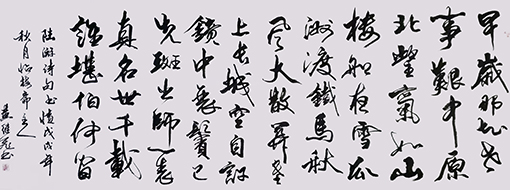 早歲那知世
事艱中原
北望氣如山
樓船夜雪瓜
洲渡鐵馬秋
风大散關塞
上长城空自許
鏡中衰鬢已
先斑出師一表
真名世千載
誰堪伯仲間
陸游诗句书憤戊戌年
秋月